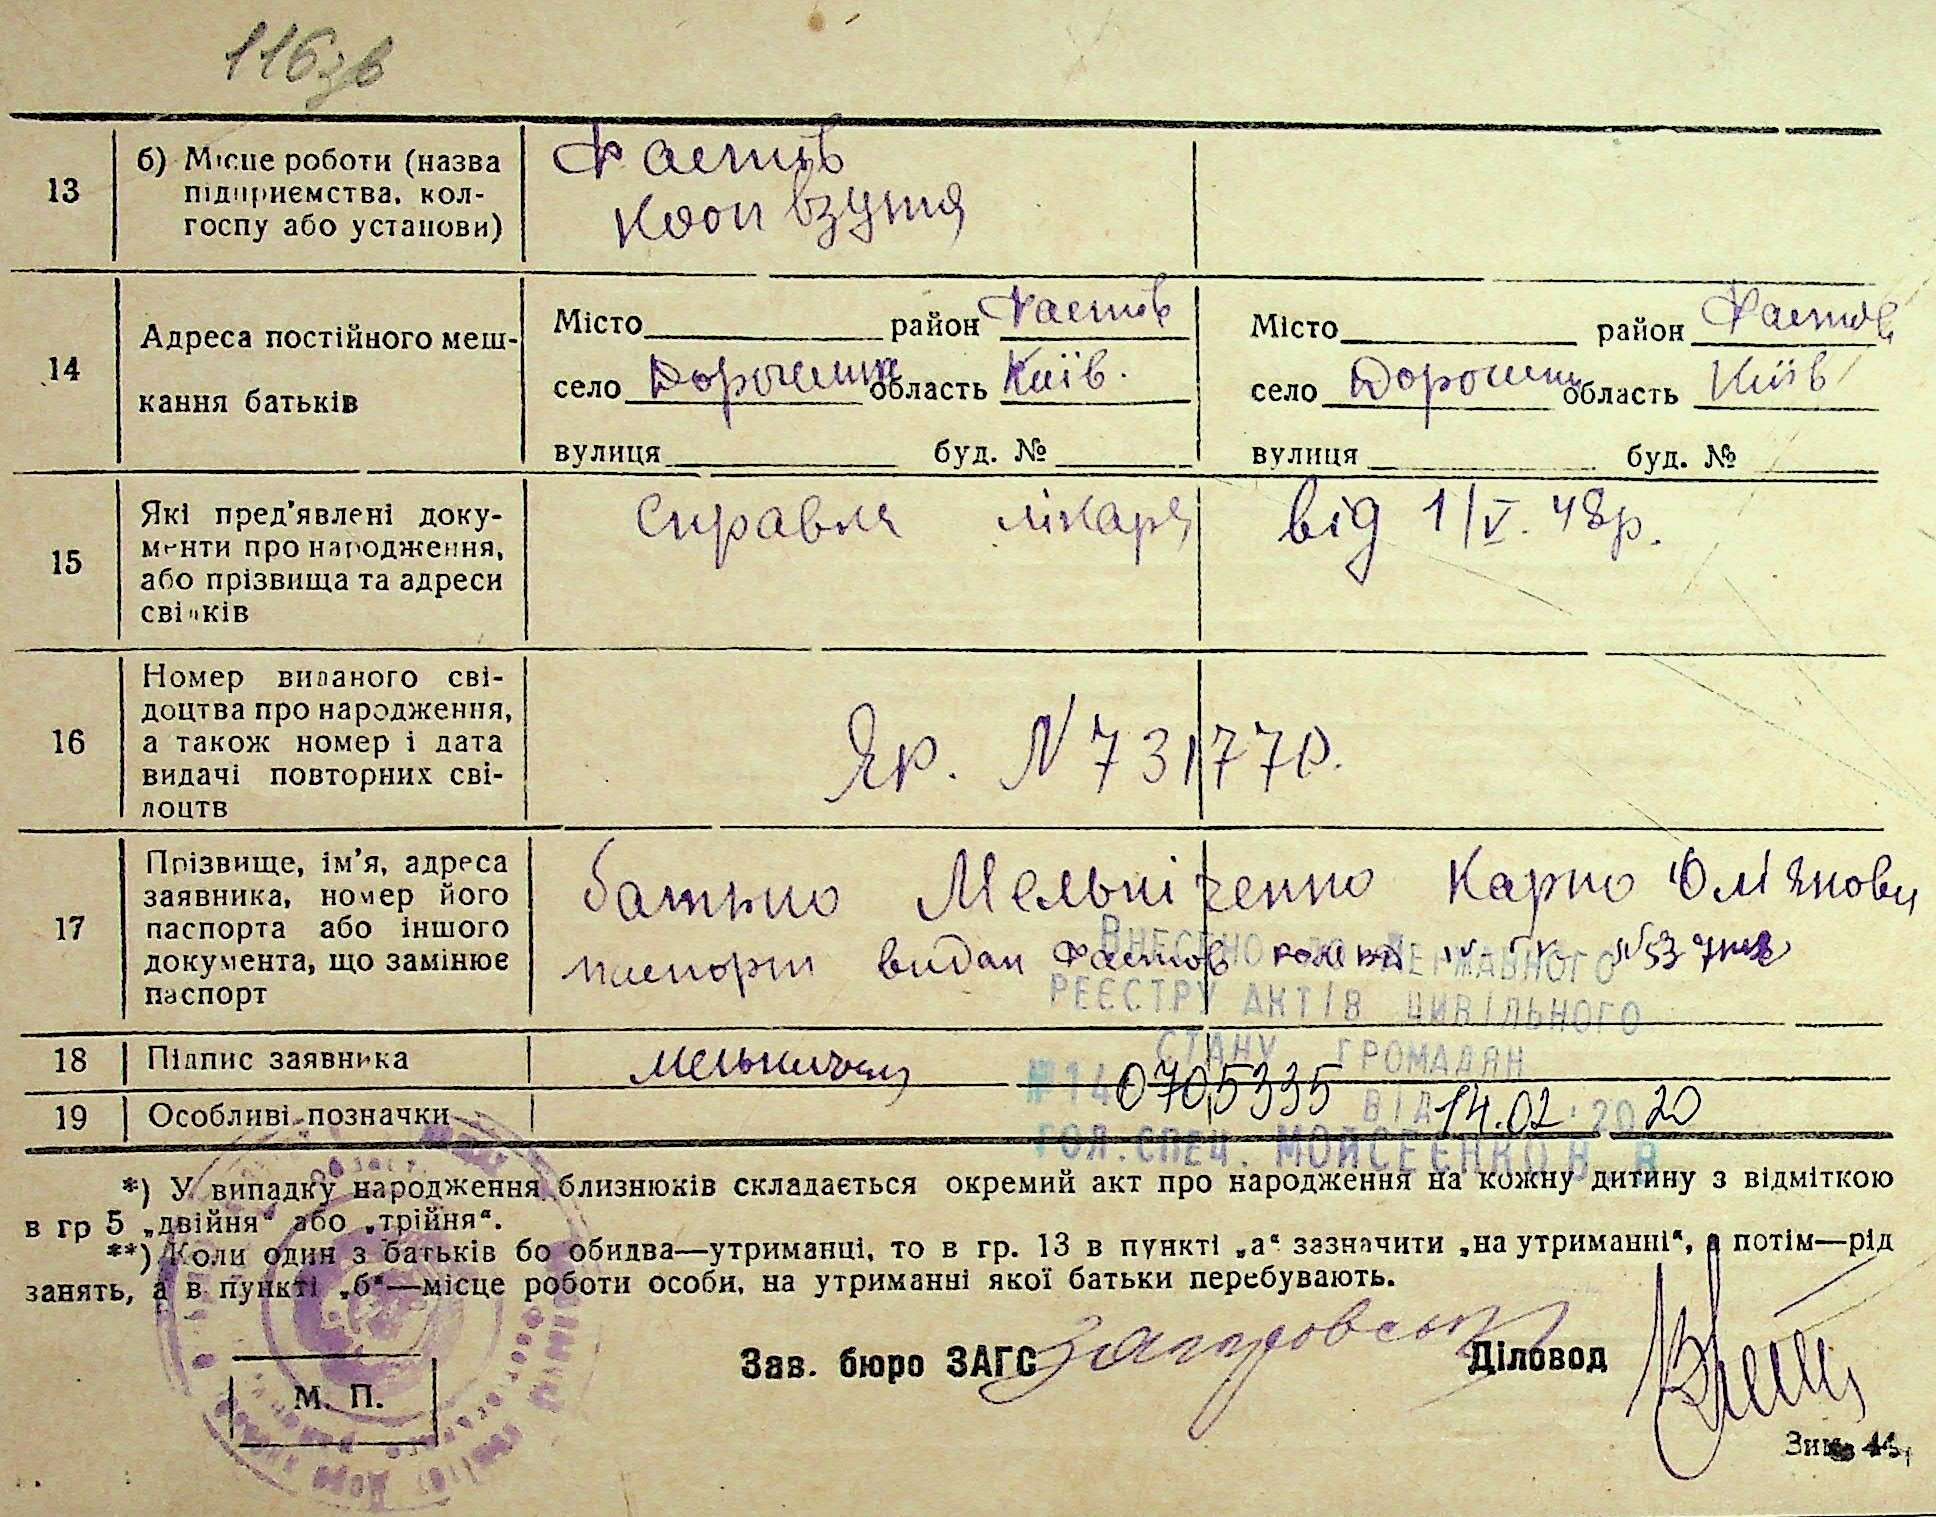 116зв
13 б) Місце роботи (назва підприємства, колгоспу або установи)
Фастів
кооп взуття
14 Адреса постійного мешкання батьків
Місто район Фастів
село Дорогинк область Київ.
вулиця буд. №
Місто район Фастів
село Дорогин область Київ
вулиця буд. №
15 Які пред'явлені документи про народження, або прізвища та адреси свідків
справка лікаря від 1/V. 48р.
16 Номер виданого свідоцтва про народження, а також номер і дата видачі повторних свідоцтв
Яр. N 731770.
17 Прізвище, ім'я, адреса заявника, номер його паспорта або іншого документа, що замінює паспорт
батько Мельніченко Карпо
паспорт видан Фастов
ВНЕСЕНО ДО ДЕРЖАВНОГО
РЕЄСТРУ АКТІВ ЦИВІЛЬНОГО
СТАНУ ГРОМАДЯН
18 Підпис заявника
№14 0705335
19 Особливі позначки
ВІД 14.02.2020
ГОЛ.СПЕЦ. МОЙСЕЄНКО В. В
*) У випадку народження близнюків складається окремий акт про народження на кожну дитину з відміткою
в гр 5 „двійня“ або „трійня“.
**) Коли один з батьків бо обидва—утриманці, то в гр. 13 в пункті „а“ зазначити „на утриманні“, а потім—рід
занять, а в пункті „б“—місце роботи особи, на утриманні якої батьки перебувають.
Зав. бюро ЗАГС
Діловод
М. П.